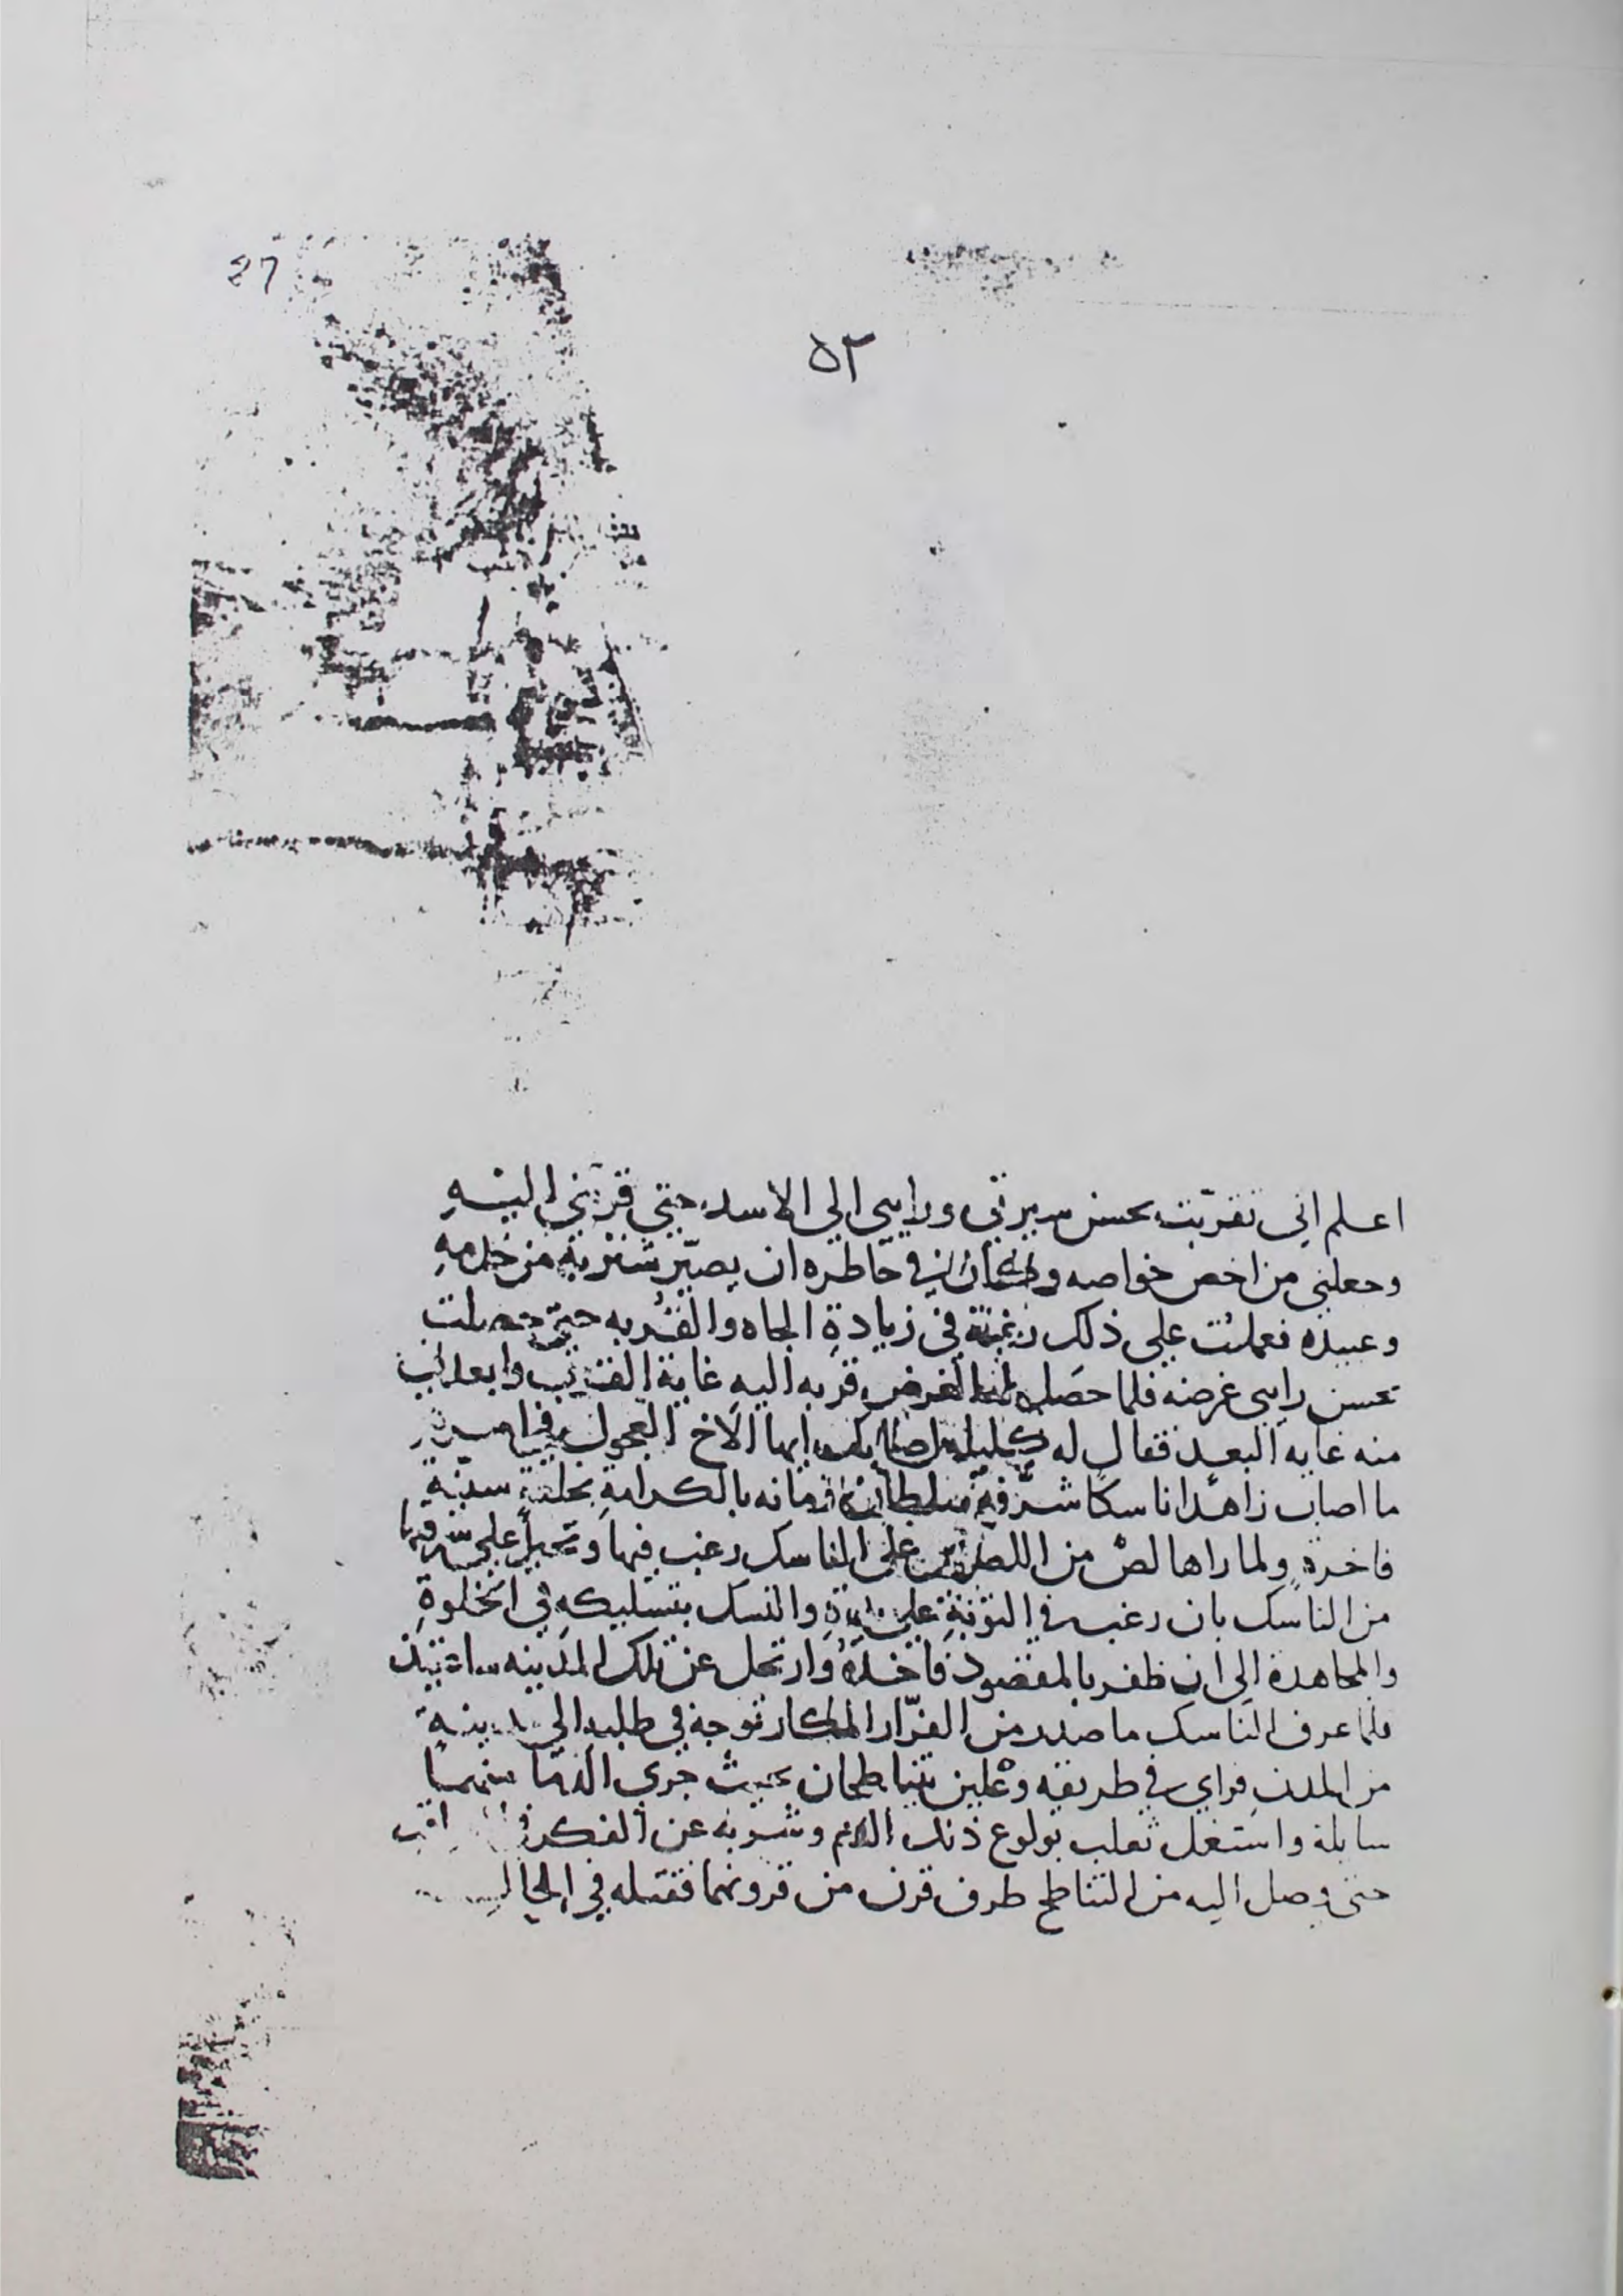 ٤٦
٥٢
اعلم اني تقربت بحسن سيرتي ورايي الي الاسد حتي قربني اليه
وجعلني من اخص خواصه وكان في خاطره ان يصير شنزبة من خدمه
وعبيده فعملت علي ذلك رغبة في زيادة الجاه والقربه حتي حصلت
بحسن رايي غرضه فلما حصل له الغرض قربه اليه غاية القرب وابعدني
منه غايه البعد فقال له كليله ايها الاخ العجول
ما اصاب زاهدا ناسكا شرفه سلطان زمانه بالكرامة بحلة سنية
فاخرة ولما راها لص من اللصوص علي الناسك رغب فيها وتحيل علي سرقتها
من الناسك بان رغب في التوبة علي يده والنسك بتسليكه في الخلوة
والمجاهدة الي ان ظفر بالمقصود فاخذه وارتحل عن تلك المدينه
فلما عرف الناسك ما صدر من الغرار المكار توجه في طلبه الي مدينة
من المدن فراي في طريقه وعلين يتناطحان بحيث جري الدما منهما
سايلة واشتغل ثعلب بولوع ذلك الدم وشربه عن الفكر
حتي وصل اليه من التناطح طرف قرن من قرونهما فقتله في الحال